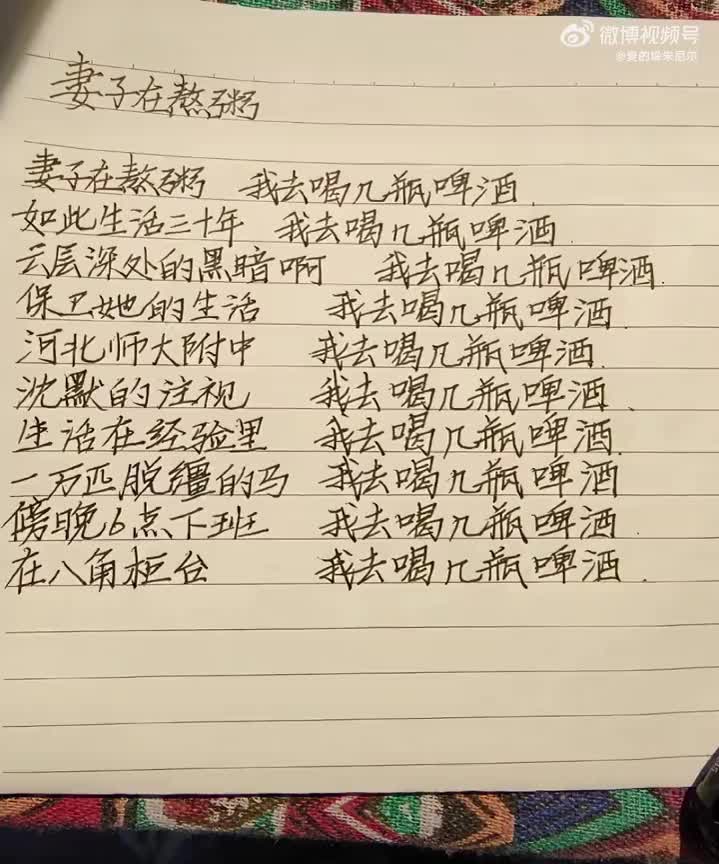 微博视频号
妻子在熬粥
妻子在熬粥 我去喝几瓶啤酒.
如此生活三十年 我去喝几瓶啤酒.
云层深处的黑暗啊 我去喝几瓶啤酒.
保卫她的生活 我去喝几瓶啤酒.
河北师大附中 我去喝几瓶啤酒.
沈默的注视 我去喝几瓶啤酒.
生活在经验里 我去喝几瓶啤酒.
一万匹脱缰的马 我去喝几瓶啤酒
傍晚6点下班 我去喝几瓶啤酒.
在八角柜台 我去喝几瓶啤酒.